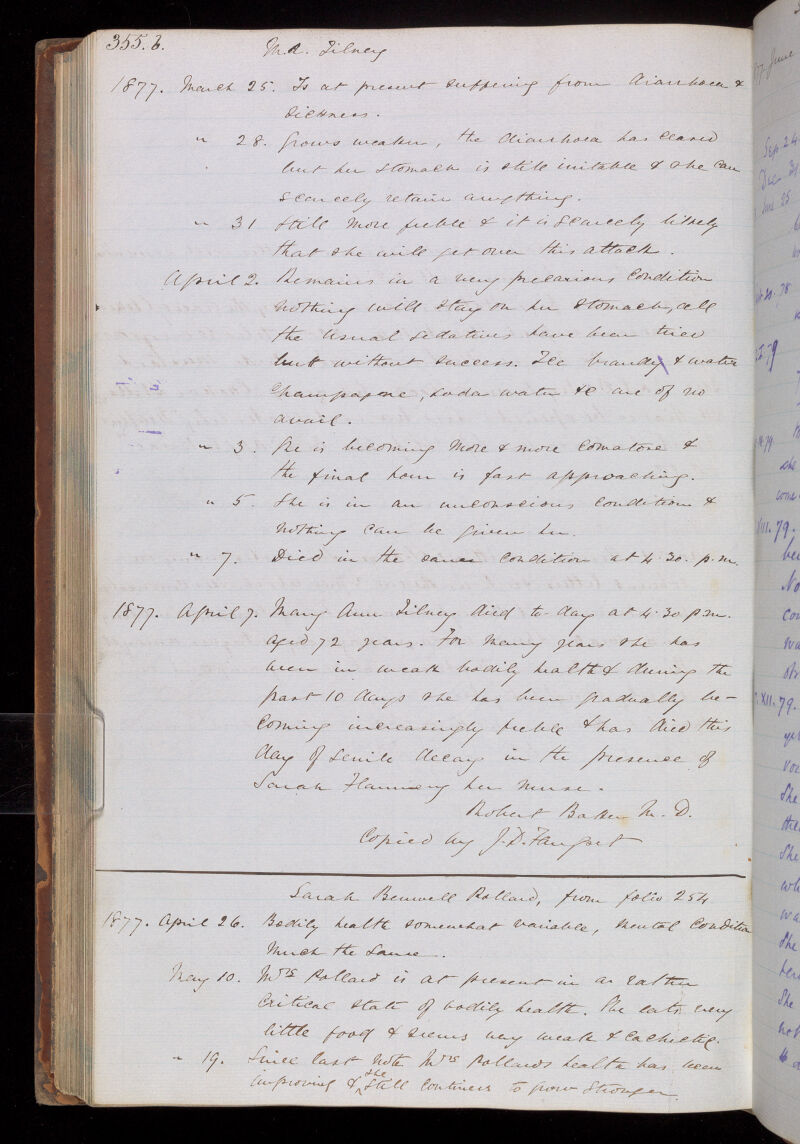 355.b.
M.A. Tilney
1877. March 25. Is at present suffering from diarrhoea &
sickness.
" 28. Grows weaker, the diarrhoea has ceased
but her stomach is still irritable & she can
scarcely retain anything.
" 31 Still more feeble & it is scarcely likely
that she will get over this attack.
April 2. Remains in a very precarious condition
nothing will stay on her stomach, all
the usual sedatives have been tried
but without success. Ice brandy & water
Champagne, soda water &c are of no
avail.
" 3. She is becoming more & more comatose &
the final hour is fast approaching.
" 5. She is in an unconscious condition &
nothing can be given her.
" 7. Died in the same condition at 4.30. p.m.
1877. April 7. Mary Ann Tilney died to-day at 4.30 p.m.
aged 72 years. For many years she has
been in weak bodily health & during the
past 10 days she has been gradually be-
coming increasingly feeble & has died this
day of senile decay in the presence of
Sarah Flannery her nurse.
Robert Baker M.D.
Copied by J.D.
Sarah Benwell Pollard, from folio 254
1877. April 26. Bodily health somewhat variable, mental condition
much the same.
May 10. Mrs Pollard is at present in a rather
critical state of bodily health. She eats very
little food & seems very weak & cachectic.
" 19. Since last note Mrs Pollards health has been
improving & she still continues to grow stronger.
June
Sep 24
Dec 31
June 25
78
79
she
79.
No
wa
XII. 79.
She
She
She
She